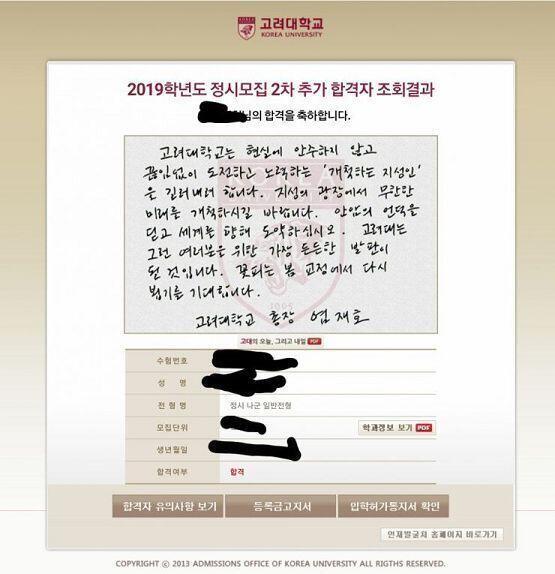 고려대학교
KOREA UNIVERSITY
2019학년도 정시모집 2차 추가 합격자 조회결과
님의 합격을 축하합니다.
고려대학교는 현실에 안주하지 않고
끊임없이 도전하고 노력하는 '개척하는 지성인'
을 길러내려 합니다. 지성의 광장에서 무한한
미래를 개척하시길 바랍니다. 안암의 언덕을
딛고 세계를 향해 도약하십시오. 고려대는
그런 여러분을 위한 가장 든든한 발판이
될 것입니다. 꽃피는 봄 교정에서 다시
뵙기를 기대합니다.
고려대학교 총장 염재호
1905
고대의 오늘, 그리고 내일 PDF
수험번호
성 명
전 형 명 정시 나군 일반전형
모집단위 학과정보 보기 PDF
생년월일
합격여부 합격
합격자 유의사항 보기 등록금고지서 입학허가통지서 확인
인재발굴처 홈페이지 바로가기
COPYRIGHT ⓒ 2013 ADMISSIONS OFFICE OF KOREA UNIVERSITY ALL RIGTHS RESERVED.